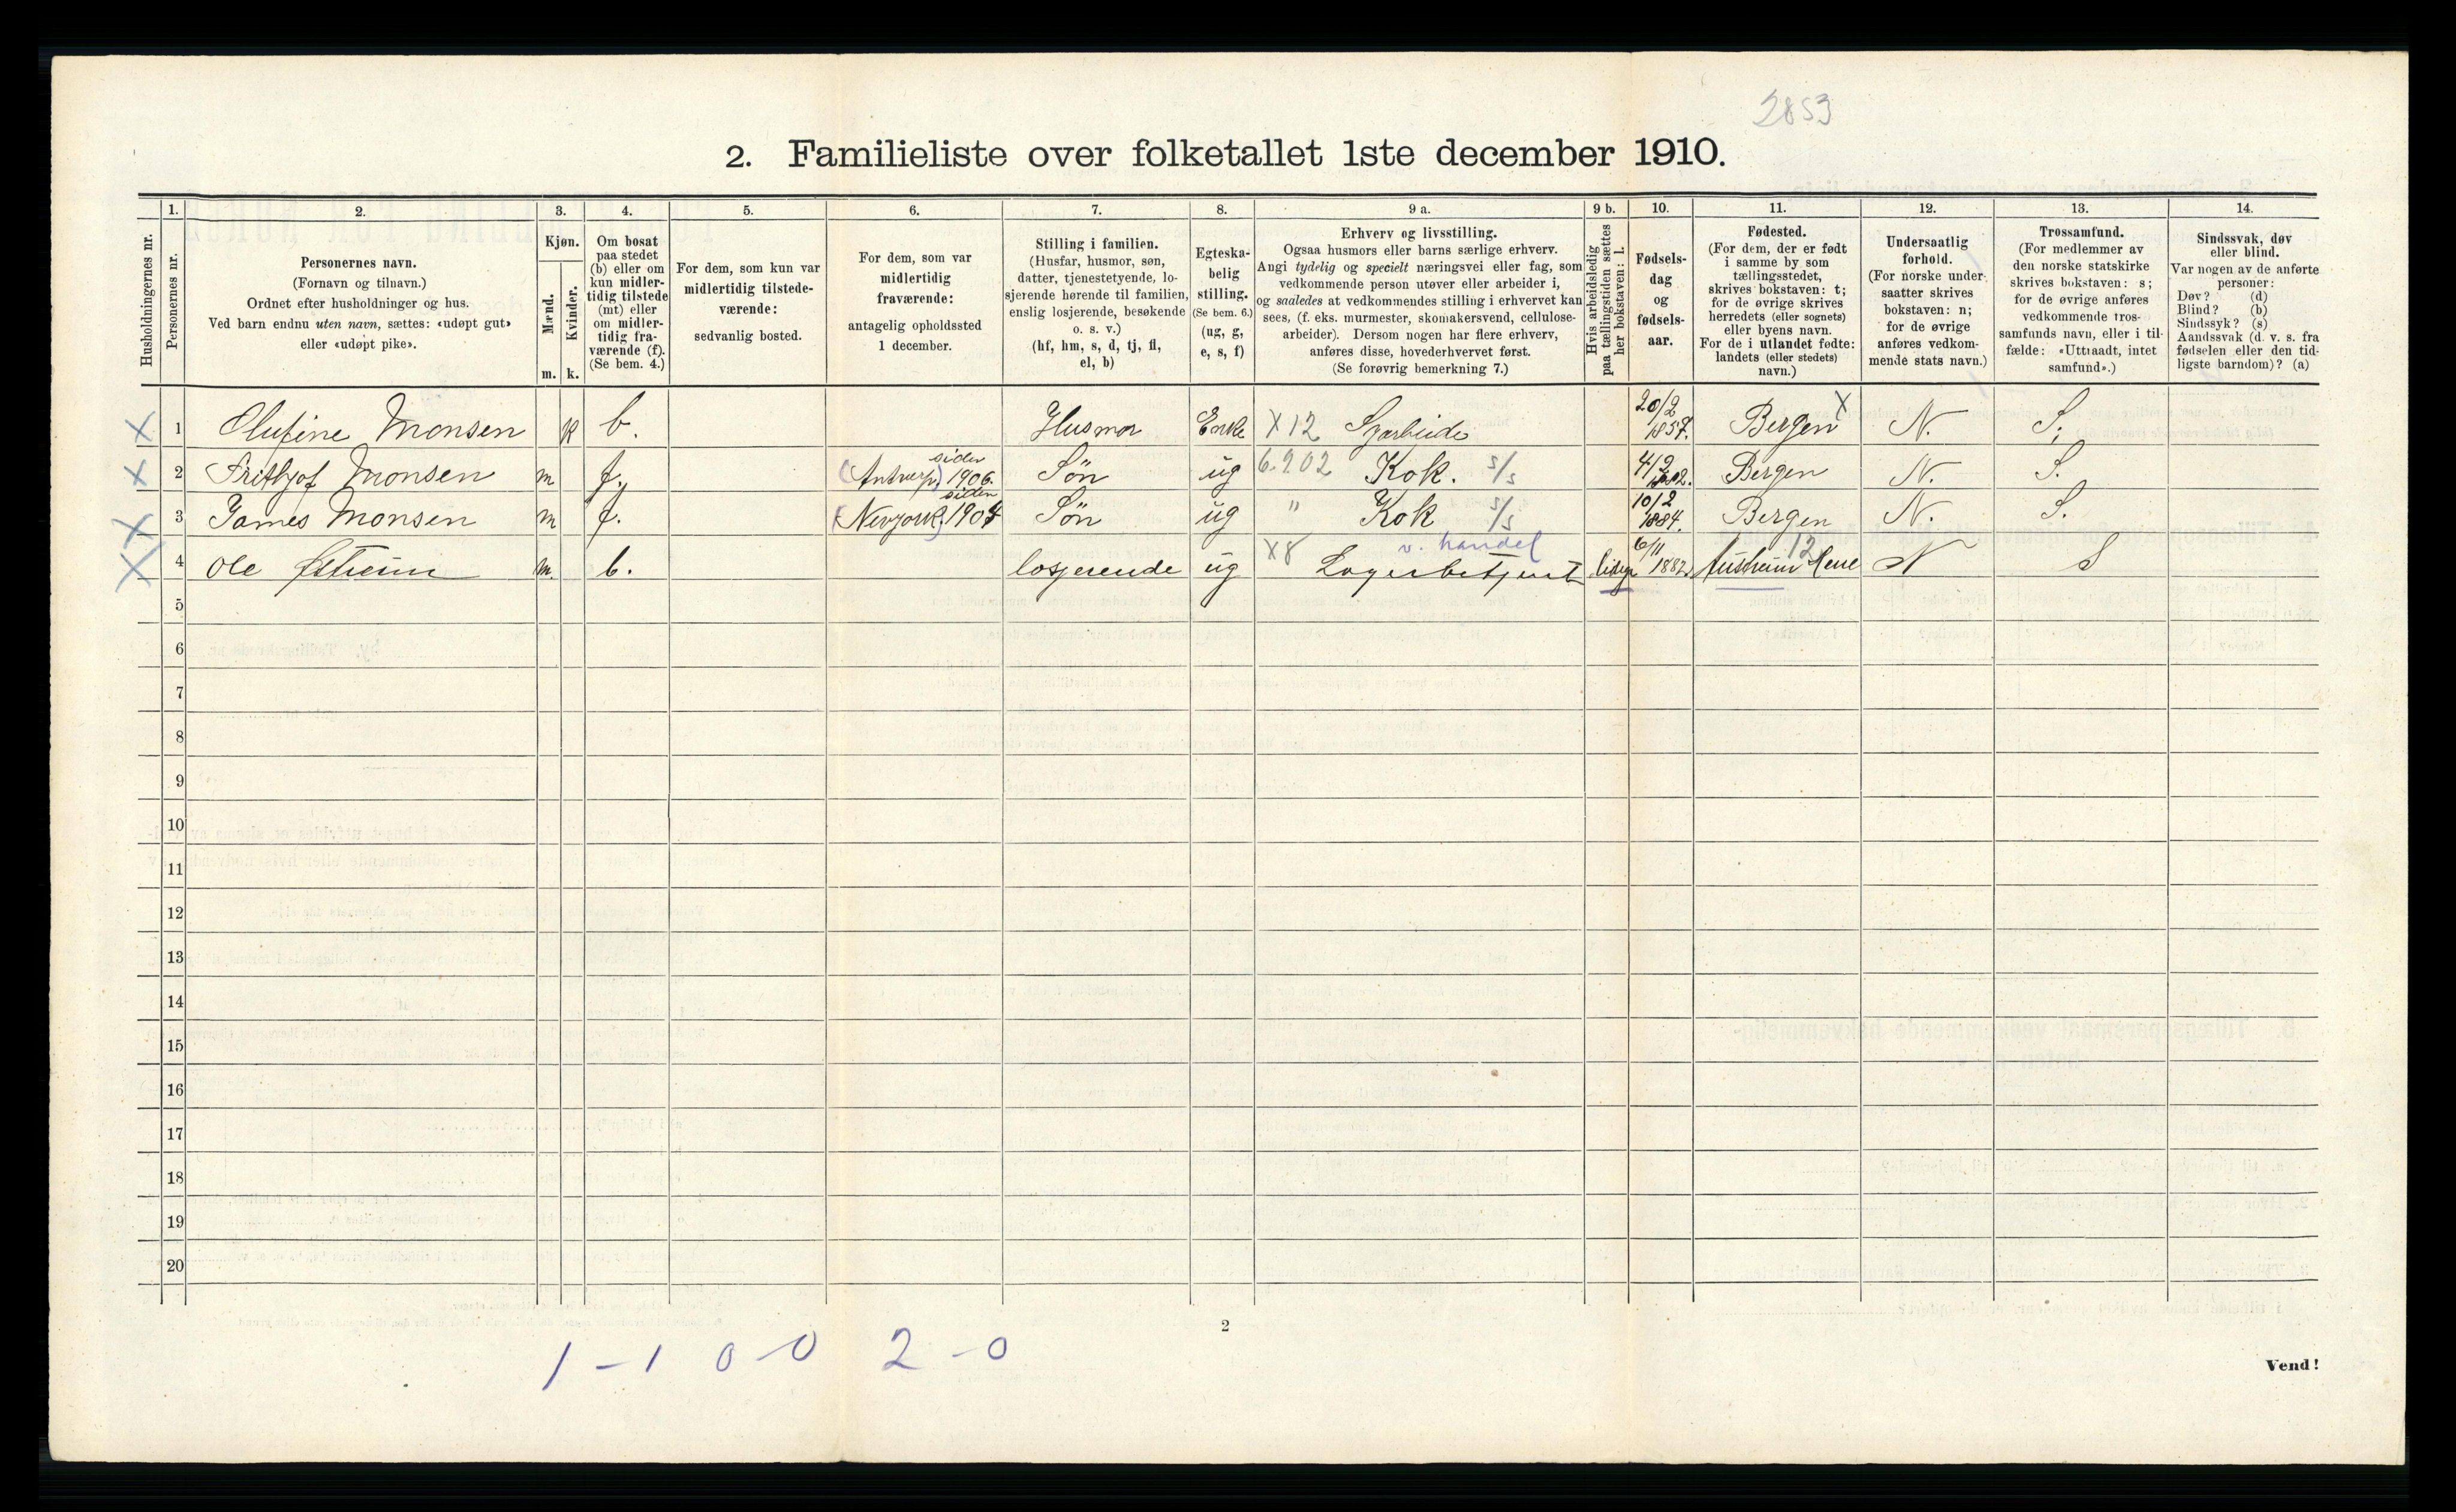 2853
2. Familieliste over folketallet 1ste december 1910.
Husholdningernes nr.
1.
Personernes nr.
2.
Personernes navn.
(Fornavn og tilnavn.)
Ordnet efter husholdninger og hus.
Ved barn endnu uten navn, sættes: «udøpt gut»
eller «udøpt pike».
3.
Kjøn.
Mænd.
Kvinder.
m. k.
4.
Om bosat
paa stedet
(b) eller om
kun midler-
tidig tilstede
(mt) eller
om midler-
tidig fra-
værende (f).
(Se bem. 4.)
5.
For dem, som kun var
midlertidig tilstede-
værende:
sedvanlig bosted.
6.
For dem, som var
midlertidig
fraværende:
antagelig opholdssted
1 december.
7.
Stilling i familien.
(Husfar, husmor, søn,
datter, tjenestetyende, lo-
sjerende hørende til familien,
enslig losjerende, besøkende
o. s. v.)
(hf, hm, s, d, tj, fl,
el, b)
8.
Egteska-
belig
stilling.
(Se bem. 6.)
(ug, g,
e, s, f)
9 a.
Erhverv og livsstilling.
Ogsaa husmors eller barns særlige erhverv.
Angi tydelig og specielt næringsvei eller fag, som
vedkommende person utøver eller arbeider i,
og saaledes at vedkommendes stilling i erhvervet kan
sees, (f. eks. murmester, skomakersvend, cellulose-
arbeider). Dersom nogen har flere erhverv,
anføres disse, hovederhvervet først.
(Se forøvrig bemerkning 7.)
9 b.
Hvis arbeidsledig
paa tællingstiden sættes
her bokstaven: l.
10.
Fødsels-
dag
og
fødsels-
aar.
11.
Fødested.
(For dem, der er født
i samme by som
tællingsstedet,
skrives bokstaven: t;
for de øvrige skrives
herredets (eller sognets)
eller byens navn.
For de i utlandet fødte:
landets (eller stedets)
navn.)
12.
Undersaatlig
forhold.
(For norske under-
saatter skrives
bokstaven: n;
for de øvrige
anføres vedkom-
mende stats navn.)
13.
Trossamfund.
(For medlemmer av
den norske statskirke
skrives bokstaven: s;
for de øvrige anføres
vedkommende tros-
samfunds navn, eller i til-
fælde: «Uttraadt, intet
samfund».)
14.
Sindssvak, døv
eller blind.
Var nogen av de anførte
personer:
Døv? (d)
Blind? (b)
Sindssyk? (s)
Aandssvak (d. v. s. fra
fødselen eller den tid-
ligste barndom)? (a)
X 1 Olufine Monsen k b. Husmor Enke X12 20/2 1857. Bergen X N. S.
X 2 Frithjof Monsen m f. (Antverp.) siden 1906. Søn ug 6.202 Kok. s/s 4/2 Bergen N. S.
X 3 James Monsen m f. (Nevjork) siden 1904 Søn ug " Kok s/s 10/2 1884. Bergen N. S.
X 4 Ole m. b. losjerende ug X8 Lagerbetjent v. handel 6/11 1882 12 N S
5
6
7
8
9
10
11
12
13
14
15
16
17
18
19
20
2
1 - 1 0 - 0 2 - 0
Vend!